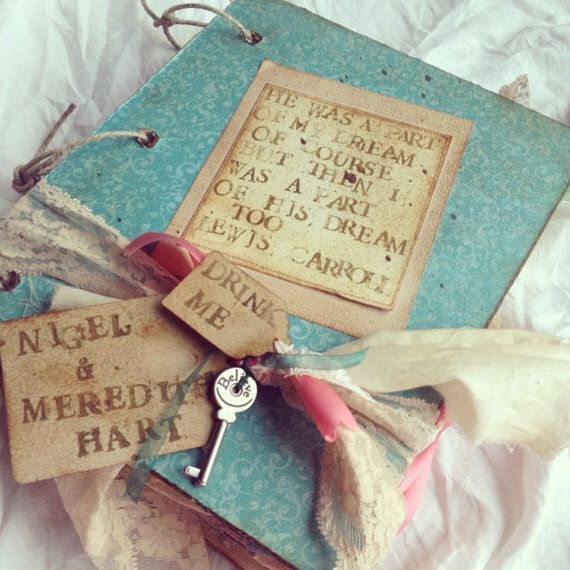 HE WAS A PART
OF MY DREAM
OF COURSE
BUT THEN I
WAS A PART
OF HIS DREAM
TOO
LEWIS CARROLL
DRINK
ME
NIGEL
&
MEREDITH
HART
Believe